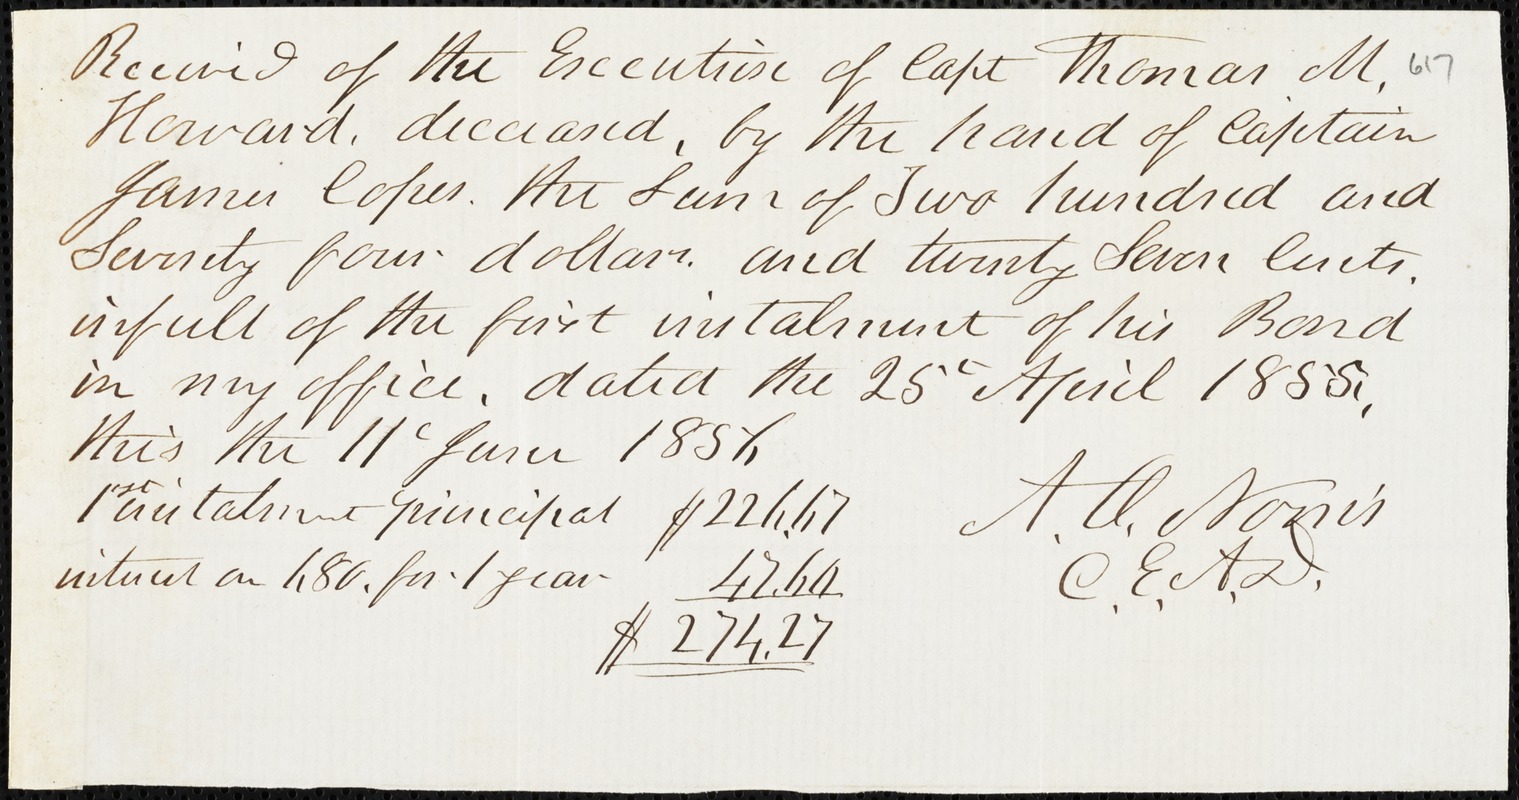 Received of the Executrix of Capt Thomas M. 617
Howard, deceased, by the hand of Captain
James Copes. the Sum of Two hundred and
Seventy four dollars. and twenty Seven Cents.
infull of the first instalment of his Bond
in my office, dated the 25t April 1855,
this the 11t June 1856
1st instalment principal $226.67 A. O. Norris
interest on 680. for 1 year 47.60 C.E.A.D.
$ 274.27